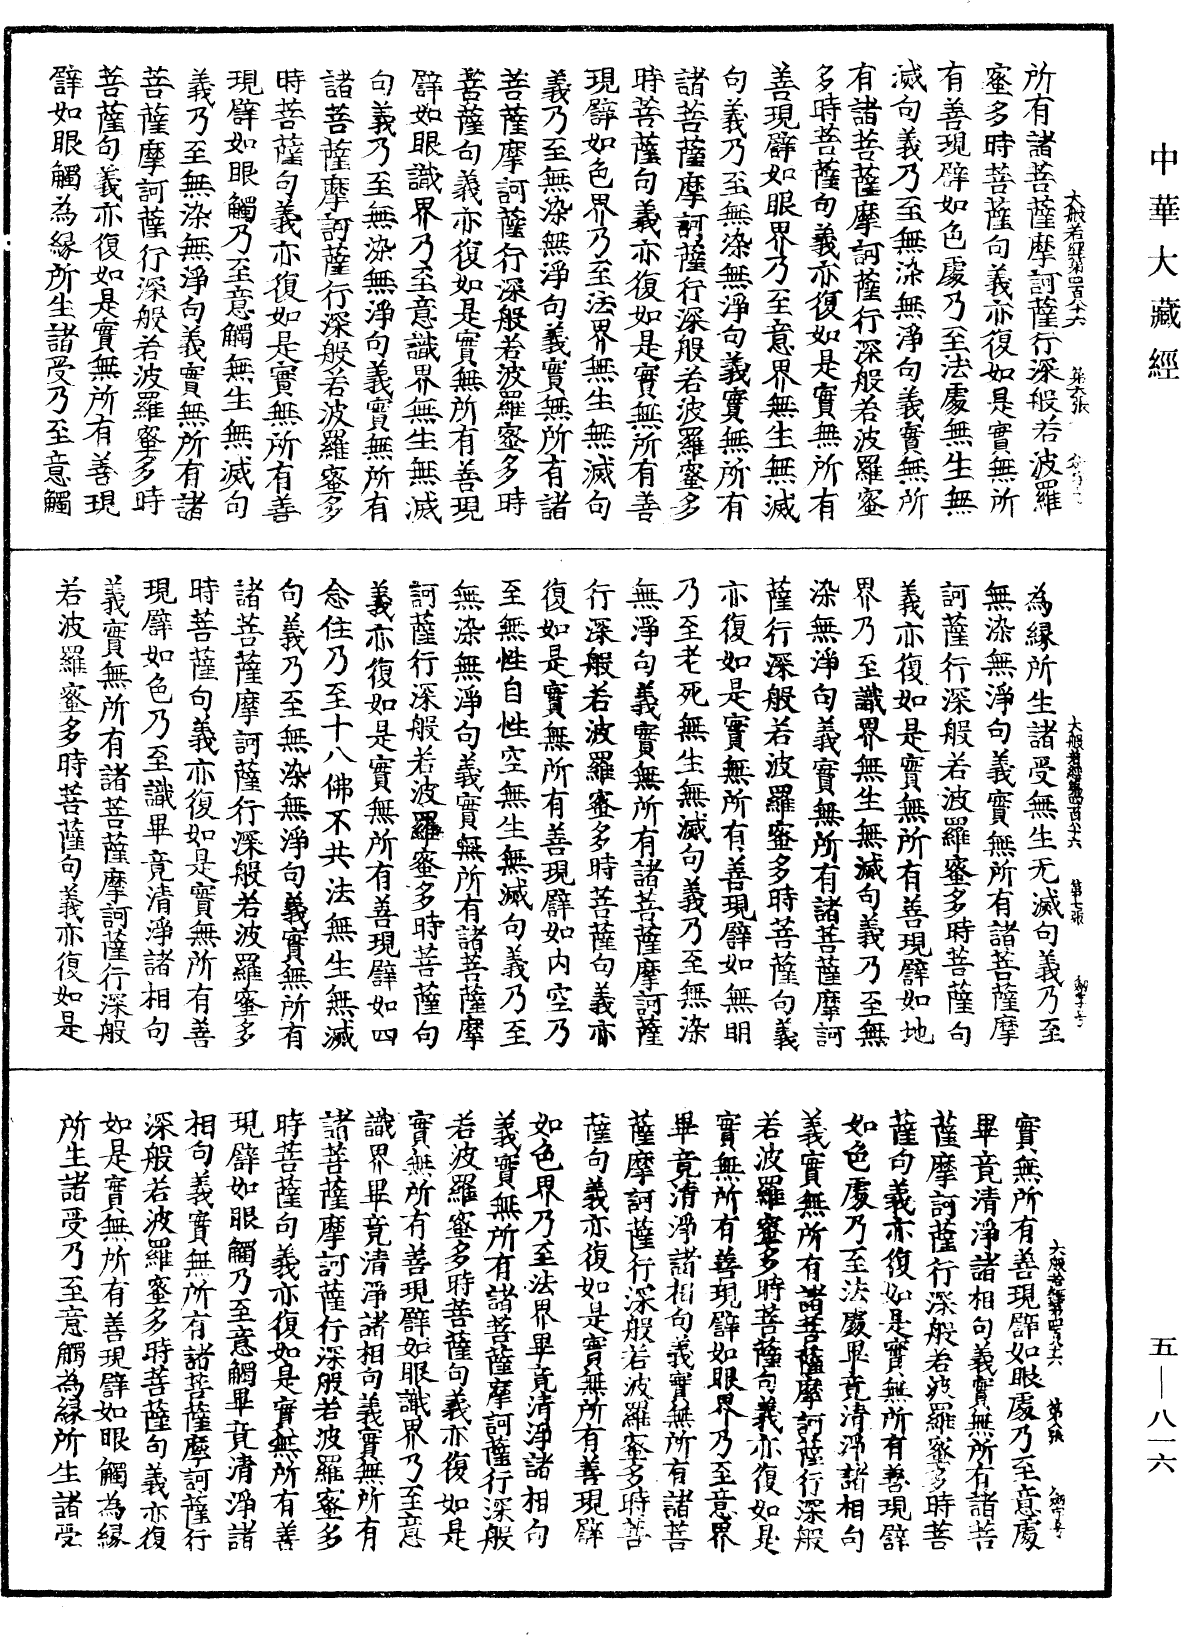 中華大藏經
所有諸菩薩摩訶薩行深般若波羅
蜜多時菩薩句義亦復如是實無所
有善現譬如色處乃至法處無生無
滅句義乃至無染無淨句義實無所
有諸菩薩摩訶薩行深般若波羅蜜
多時菩薩句義亦復如是實無所有
善現譬如眼界乃至意界無生無滅
句義乃至無染無淨句義實無所有
諸菩薩摩訶薩行深般若波羅蜜多
時菩薩句義亦復如是實無所有善
現譬如色界乃至法界無生無滅句
義乃至無染無淨句義實無所有諸
菩薩摩訶薩行深般若波羅蜜多時
菩薩句義亦復如是實無所有善現
譬如眼識界乃至意識界無生無滅
句義乃至無染無淨句義實無所有
諸菩薩摩訶薩行深般若波羅蜜多
時菩薩句義亦復如是實無所有善
現譬如眼觸乃至意觸無生無滅句
義乃至無染無淨句義實無所有諸
菩薩摩訶薩行深般若波羅蜜多時
菩薩句義亦復如是實無所有善現
譬如眼觸為緣所生諸受乃至意觸
大般若經第四百八十六 第六張
為緣所生諸受無生无滅句義乃至
無染無淨句義實無所有諸菩薩摩
訶薩行深般若波羅蜜多時菩薩句
義亦復如是實無所有善現譬如地
界乃至識界無生無滅句義乃至無
染無淨句義實無所有諸菩薩摩訶
薩行深般若波羅蜜多時菩薩句義
亦復如是實無所有善現譬如無明
乃至老死無生無滅句義乃至無染
無淨句義實無所有諸菩薩摩訶薩
行深般若波羅蜜多時菩薩句義亦
復如是實無所有善現譬如內空乃
至無性自性空無生無滅句義乃至
無染無淨句義實無所有諸菩薩摩
訶薩行深般若波羅蜜多時菩薩句
義亦復如是實無所有善現譬如四
念住乃至十八佛不共法無生無滅
句義乃至無染無淨句義實無所有
諸菩薩摩訶薩行深般若波羅蜜多
時菩薩句義亦復如是實無所有善
現譬如色乃至識畢竟清淨諸相句
義實無所有諸菩薩摩訶薩行深般
若波羅蜜多時菩薩句義亦復如是
大般若經第四百八十六 第七張
實無所有善現譬如眼處乃至意處
畢竟清淨諸相句義實無所有諸菩
薩摩訶薩行深般若波羅蜜多時菩
薩句義亦復如是實無所有善現譬
如色處乃至法處畢竟清淨諸相句
義實無所有諸菩薩摩訶薩行深般
若波羅蜜多時菩薩句義亦復如是
實無所有善現譬如眼界乃至意界
畢竟清淨諸相句義實無所有諸菩
薩摩訶薩行深般若波羅蜜多時菩
薩句義亦復如是實無所有善現譬
如色界乃至法界畢竟清淨諸相句
義實無所有諸菩薩摩訶薩行深般
若波羅蜜多時菩薩句義亦復如是
實無所有善現譬如眼識界乃至意
識界畢竟清淨諸相句義實無所有
諸菩薩摩訶薩行深般若波羅蜜多
時菩薩句義亦復如是實無所有善
現譬如眼觸乃至意觸畢竟清淨諸
相句義實無所有諸菩薩摩訶薩行
深般若波羅蜜多時菩薩句義亦復
如是實無所有善現譬如眼觸為緣
所生諸受乃至意觸為緣所生諸受
大般若經第四百八十六 第八張
五—八一六